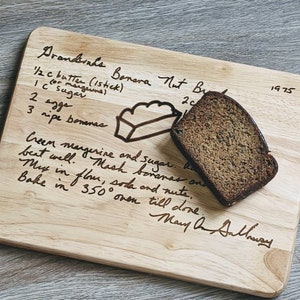 Grandma's Banana Nut Br 1975
1/2 c butter (1 stick) 2 c
(or margarine)
1 c sugar
2 eggs
3 ripe bananas
Cream margarine and sugar
beat well. Mash bananas
Mix in flour, soda and nuts.
Bake in 350° oven till done
Mary A.